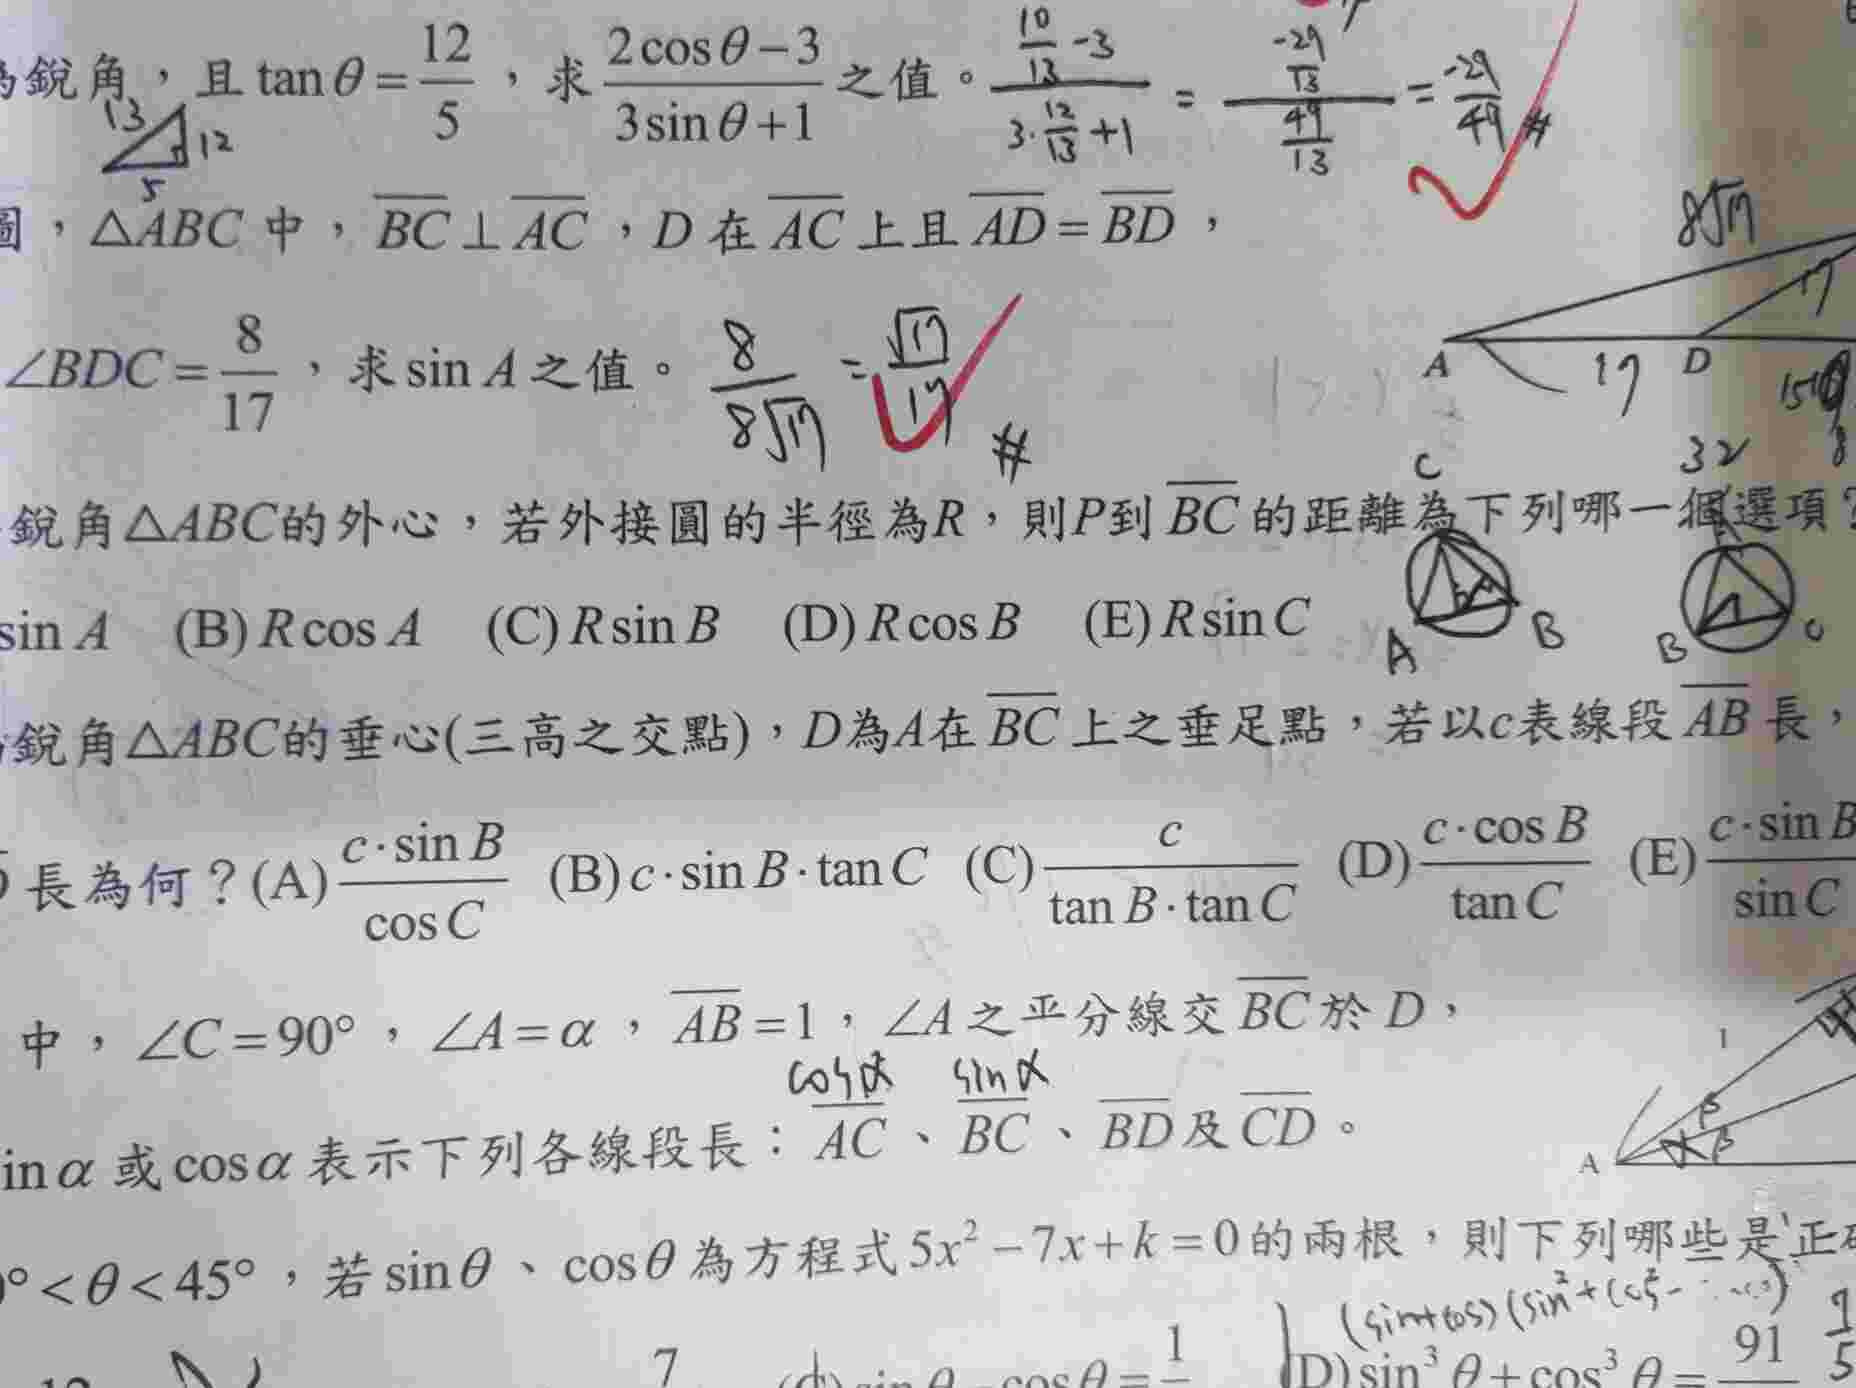 為銳角，且 tan θ = 12/5，求 (2cos θ − 3)/(3sin θ + 1) 之值。 (10/13 − 3)/(3·12/13 + 1) = (−29/13)/(49/13) = −29/49 #
13 12 5
圖，△ABC 中，BC ⊥ AC，D 在 AC 上且 AD = BD，
8√17
17
∠BDC = 8/17，求 sin A 之值。 8/(8√17) = √17/17 #
A 17 D 15
32 8
銳角△ABC的外心，若外接圓的半徑為R，則P到 BC 的距離為下列哪一個選項？
sin A (B) R cos A (C) R sin B (D) R cos B (E) R sin C
C A B
A B C
銳角△ABC的垂心(三高之交點)，D為A在 BC 上之垂足點，若以c表線段 AB 長，
長為何？(A) c·sin B/cos C (B) c·sin B·tan C (C) c/(tan B·tan C) (D) c·cos B/tan C (E) c·sin B/sin C
中，∠C = 90°，∠A = α，AB = 1，∠A 之平分線交 BC 於 D，
cosα sinα
in α 或 cos α 表示下列各線段長：AC、BC、BD 及 CD。
1 β β A
0° < θ < 45°，若 sin θ、cos θ 為方程式 5x² − 7x + k = 0 的兩根，則下列哪些是正確
(sin+cos)(sin²+cos²−
7/5
12 7 sin θ − cos θ = 1 (D) sin³ θ + cos³ θ = 91